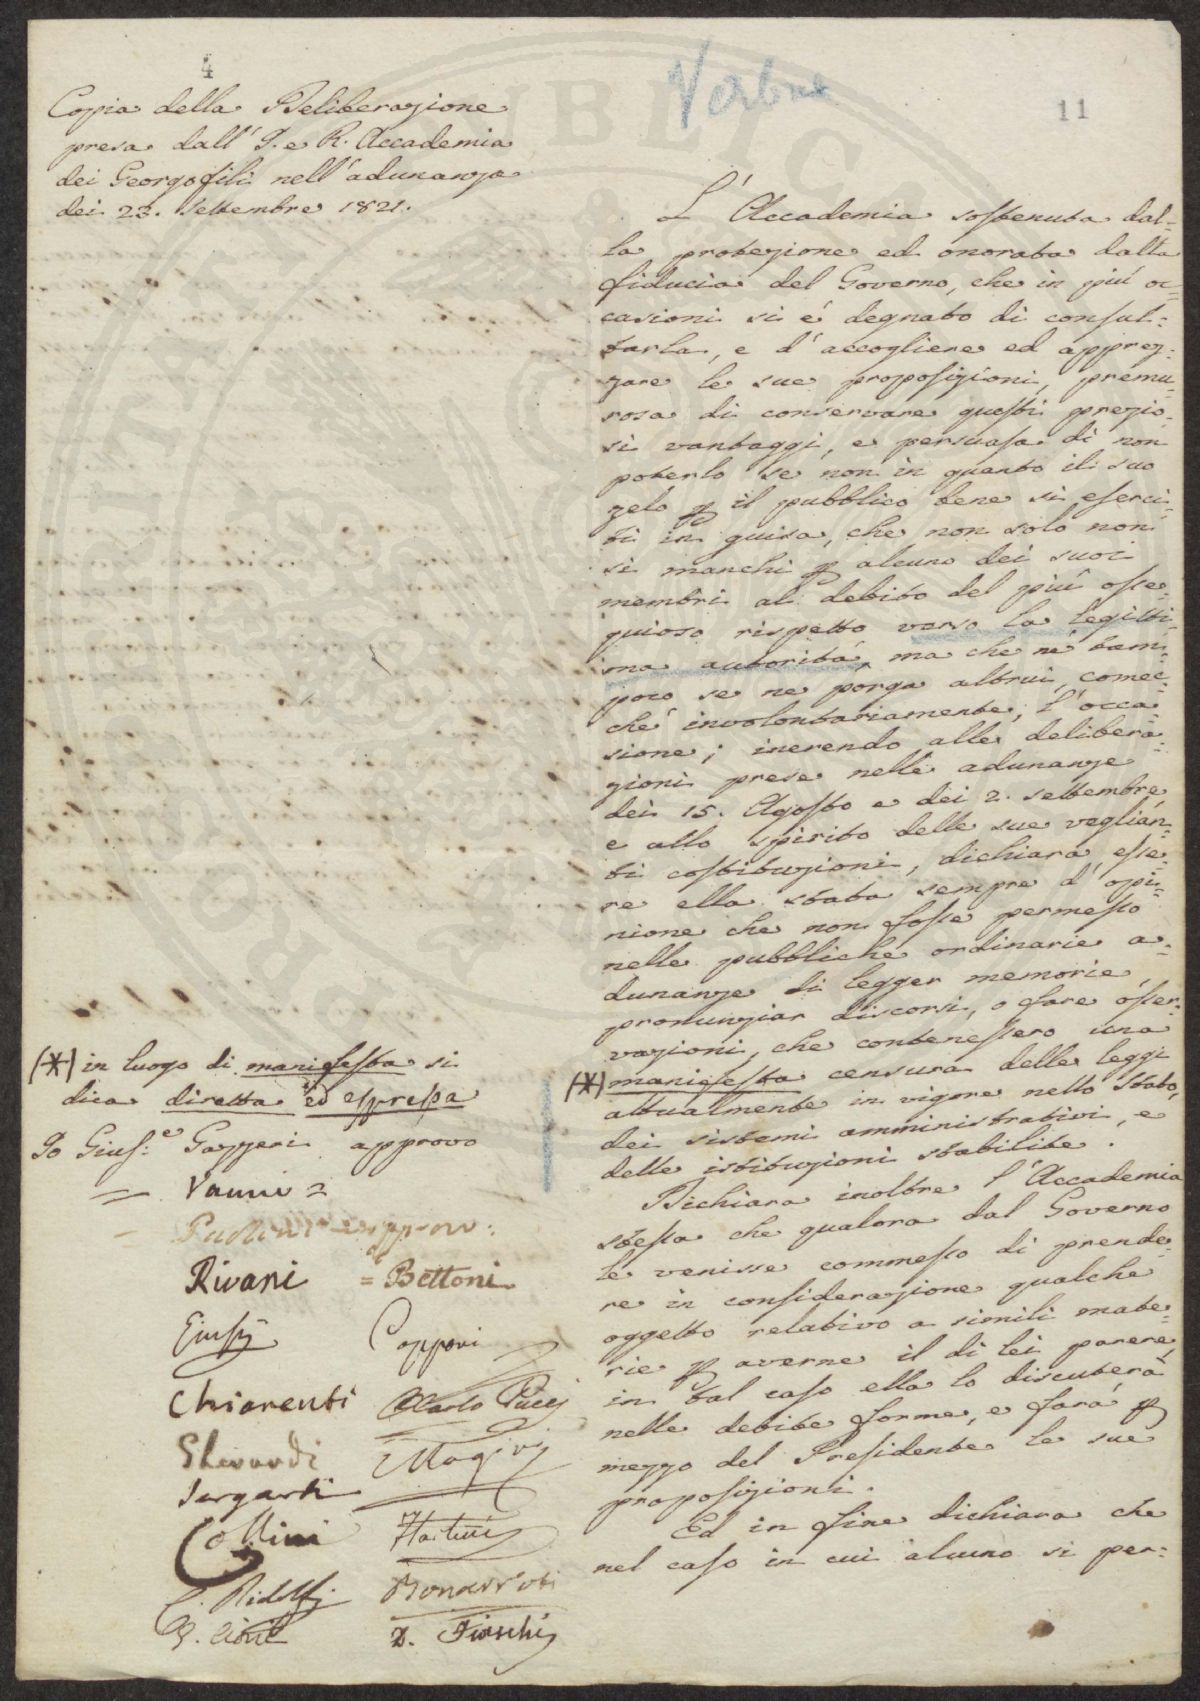 4
11
Copia della Deliberazione
presa dall' I. e R. Accademia
dei Georgofili nell'adunanza
dei 23. Settembre 1821.
L'Accademia sostenuta dal=
la protezione ed onorata dalla
fiducia del Governo, che in più oc=
casioni si é degnato di consul=
tarla, e d'accogliere ed apprez=
zare le sue proposizioni, premu=
rosa di conservare questi prezio=
si vantaggi, e persuasa di non
poterlo se non in quanto il suo
zelo p il pubblico bene si eserci=
ti in guisa, che non solo non
si manchi p alcuno dei suoi
membri al debito del più osse=
quioso rispetto verso la legitti=
ma autorità, ma che né tam=
poco se ne porga altrui, comec=
ché involontariamente, l'occa=
sione; inerendo alle delibera=
zioni prese nelle adunanze
dei 15. Agosto e dei 2. settembre
e allo spirito delle sue veglian=
ti costituzioni, dichiara esse=
re ella stata sempre d'opi=
nione che non fosse permesso
nelle pubbliche ordinarie a=
dunanze di legger memorie,
pronunziar discorsi, o fare osser=
vazioni, che contenessero una
(*) manifesta censura delle leggi
attualmente in vigore nello Stato,
dei sistemi amministrativi, e
delle istituzioni stabilite.
Dichiara inoltre l'Accademia
stessa che qualora dal Governo
le venisse commesso di prende=
re in considerazione qualche
oggetto relativo a simili mate=
rie p averne il di lei parere,
in tal caso ella lo discuterà
nelle debite forme, e farà p
mezzo del Presidente le sue
proposizioni.
Ed in fine dichiara che
nel caso in cui alcuno si per=
(*) in luogo di manifesta si
dica diretta ed espressa
Io Gius:e Gazzeri approvo
= Vanni =
Rivani = Bettoni
Chiarenti Carlo Pucci
Gherardi Magini
Sergardi
Collini
C. Ridolfi Bonarroti